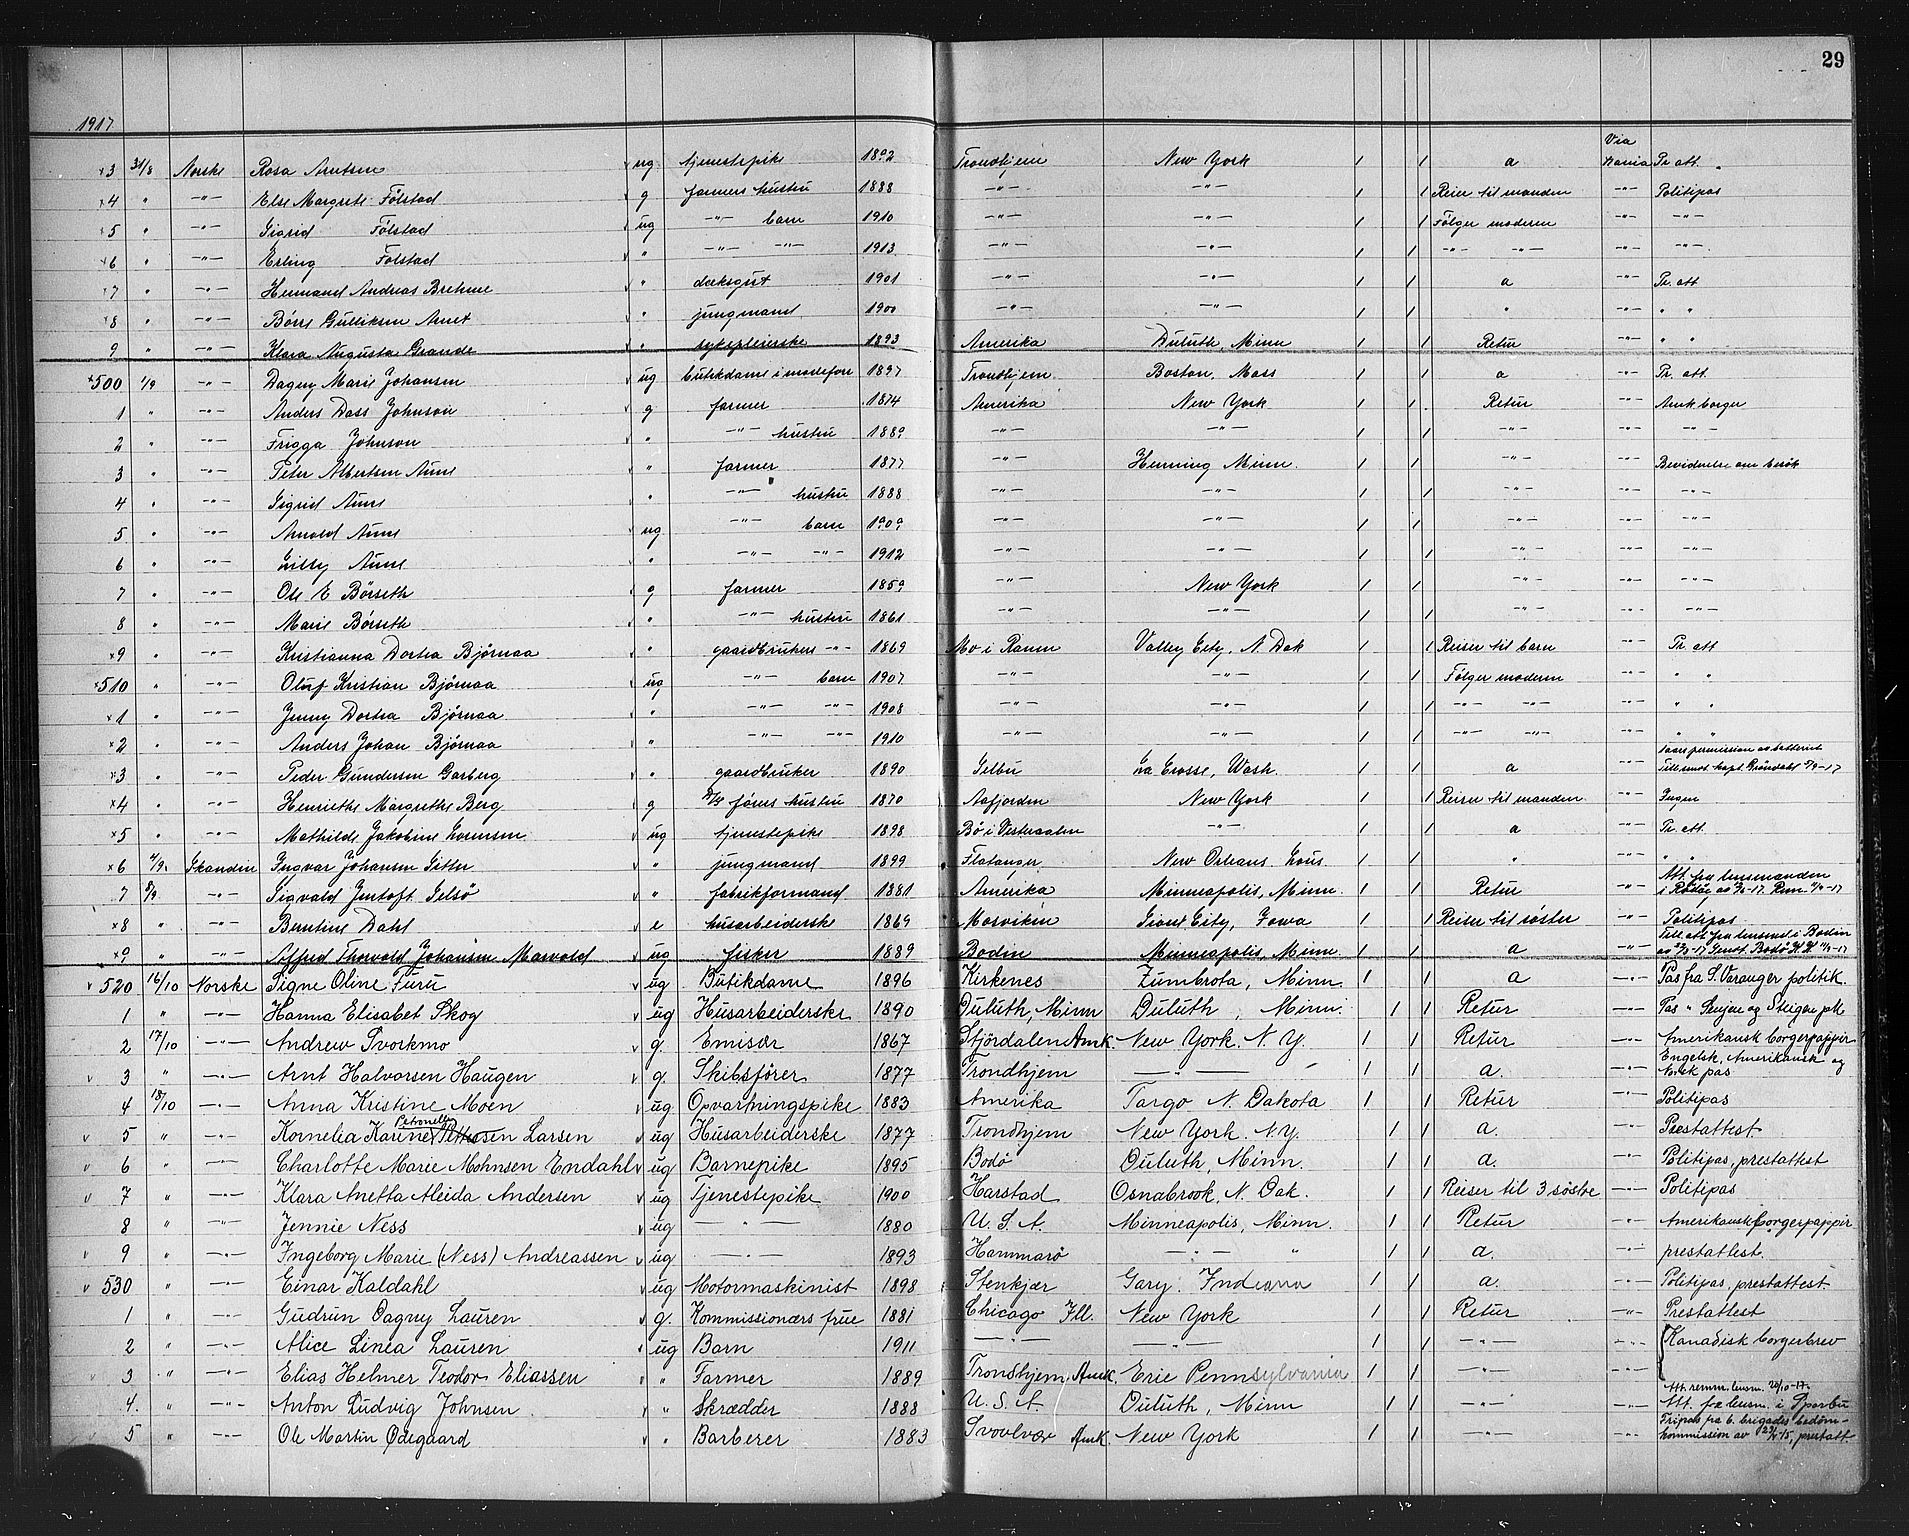 29
1917
Via
×3 31/8 Norske Rosa Arntsen ug tjenestepike 1892 Trondhjem New York 1 1 a Bania Pr. att.
×4 " -"- Else Margrete Følstad g farmers hustru 1888 -"- -"- 1 1 Reiser til manden -"- Politipas
×5 " -"- Sigrid Følstad ug -"- barn 1910 -"- -"- 1 1 Følger moderen -"- -"-
×6 " -"- Erling Følstad " -"- -"- 1913 -"- -"- 1 1 -"- -"- -"- -"-
×7 " -"- Hermand Andreas Brehme " dæksgut 1901 -"- -"- 1 1 a -"- Pr. att
×8 " -"- Børre Gulliksen Arnet " jungmand 1900 -"- -"- 1 1 " -"- " "
9 " -"- Klara Augusta Grande " sykepleierske 1893 Amerika Duluth, Minn 1 1 Retur -"- " "
×500 1/9 -"- Dagny Marie Johansen ug butikdame i modefor 1897 Trondhjem Boston, Mass 1 1 a -"- Pr. att.
1 " -"- Anders Dass Johnson g farmer 1874 Amerika New York 1 1 Retur -"- Amk borger
2 " -"- Frigga Johnson " -"- hustru 1889 -"- -"- 1 1 -"- -"- -"-
3 " -"- Peter Albertsen Aune " farmer 1877 -"- Henning Minn. 1 1 -"- -"- Bevidnelse om besøk
4 " -"- Sigrid Aune " -"- hustru 1888 -"- -"- 1 1 -"- -"- -"-
5 " -"- Arnold Aune ug -"- barn 1909 -"- -"- 1 1 -"- -"- -"-
6 " -"- Lilly Aune " -"- -"- 1912 -"- -"- 1 1 -"- -"- -"-
7 " -"- Ole E Børseth g farmer 1859 -"- New York 1 1 -"- -"- -"-
8 " -"- Marie Børseth " -"- hustru 1861 -"- -"- 1 1 -"- -"- -"-
×9 " -"- Kristianna Dortea Bjørnaa " gaardbrukers -"- 1869 Mo i Ranen Valley City, N. Dak 1 1 Reiser til barn -"- Pr. att
×510 " -"- Oluf Kristian Bjørnaa ug -"- barn 1907 -"- -"- 1 1 Følger moderen -"- " "
×1 " -"- Jenny Dortea Bjørnaa " -"- -"- 1908 -"- -"- 1 1 -"- -"- -"- " "
×2 " -"- Anders Johan Bjørnaa " -"- -"- 1910 -"- -"- 1 1 -"- -"- -"- " "
×3 " -"- Peder Gundersen Garberg " gaardbruker 1890 Selbu La Crosse, Wash. 1 1 a -"- permission av batteriet kapt. Grøndahl -17
×4 " -"- Henriette Margrethe Berg g hustru 1870 Aafjorden New York 1 1 Reiser til manden -"- Ingen
×5 " -"- Mathilde Jakobine Lorensen ug tjenestepike 1898 Bø i Vesteraalen -"- 1 1 a -"- Pr. att.
×6 4/9 Skandin Ingvar Johansen Sitter " jungmand 1899 Flatanger New Orleans. Louis. 1 1 " -"- " "
7 8/9 -"- Sigvald Jentoft Selsø " fabrikformand 1881 Amerika Minneapolis, Minn. 1 1 Retur -"- Att. fra lensmanden i Rødøy -17
×8 " -"- Berntine Dahl e husarbeiderske 1869 Mosviken Siout City, Iowa 1 1 Reiser til søster -"- Politipas
×9 " -"- Alfred Thorvald Johansen Marvold ug fisker 1889 Bodin Minneapolis, Minn 1 1 a -"- Till. att fra lensmd. i Bodin -17
v 520 16/10 Norske Signe Oline Furu ug Butikdame 1896 Kirkenes Zumbrota, Minn 1 1 a -"- Pas fra S. Varanger politik.
1 " -"- Hanna Elisabet Skog ug Husarbeiderske 1890 Duluth, Minn Duluth, Minn. 1 1 Retur -"- Pas " Senjen og Steigen pk
2 17/10 -"- Andrew Svorkmo g. Emisær 1867 Stjørdalen Amk. New York. N.Y. 1 1 Retur -"- Amerikansk borgerpappir
v 3 " -"- Arnt Halvorsen Haugen g. Skibsfører 1877 Trondhjem -"- 1 1 a. -"- Engelsk, Amerikansk og Norsk pas
4 18/10 -"- Anna Kristine Moen ug Opvartningspike 1883 Amerika Fargo N. Dakota 1 1 Retur -"- Politipas
v 5 " -"- Kornelia Karine Petronelle Larsen ug Husarbeiderske 1877 Trondhjem New York. N.Y. 1 1 a. -"- Prestattest.
v 6 " -"- Charlotte Marie Mohnsen Endahl ug Barnepike 1895 Bodø Duluth, Minn. 1 1 a. -"- Politipas, prestattest
v 7 " -"- Klara Anetta Aleida Andersen ug Tjenestepike 1900 Harstad Osnabrook, N. Dak. 1 1 Reiser til 3 søstre -"- Politipas
8 " -"- Jennie Ness ug -"- 1880 U.S.A. Minneapolis, Minn. 1 1 Retur -"- Amerikansk borgerpappir
v 9 " -"- Ingeborg Marie (Ness) Andreassen ug -"- 1893 Hammarø -"- " 1 1 a. -"- prestattest.
v 530 " -"- Einar Kaldahl ug Motormaskinist 1898 Stenkjær Gary. Indiana 1 1 a. -"- Politipas, prestattest.
1 " -"- Gudrun Dagny Lauren g. Kommissionærs frue 1881 Chicago Ill. New York 1 1 Retur -"- Prestattest
2 " -"- Alice Linea Lauren ug Barn 1911 -"- -"- 1 1 -"- -"- Kanadisk borgerbrev
v 3 " -"- Elias Helmer Teodor Eliassen " " Farmer 1889 Trondhjem, Amk. Erie Pennsylvania 1 1 -"- -"-
4. " -"- Anton Ludvig Johnsen " Skrædder 1888 U.S.A. Duluth, Minn 1 1 -"- -"- Att. lensm. -17. Att. fra lensm. i Sparbu
5 " -"- Ole Martin Ødegaard " Barberer 1883 Svolvær Amk. New York 1 1 -"- -"- Fripas fra 6. brigades bedømkommission av 23/ -15, prestatt.